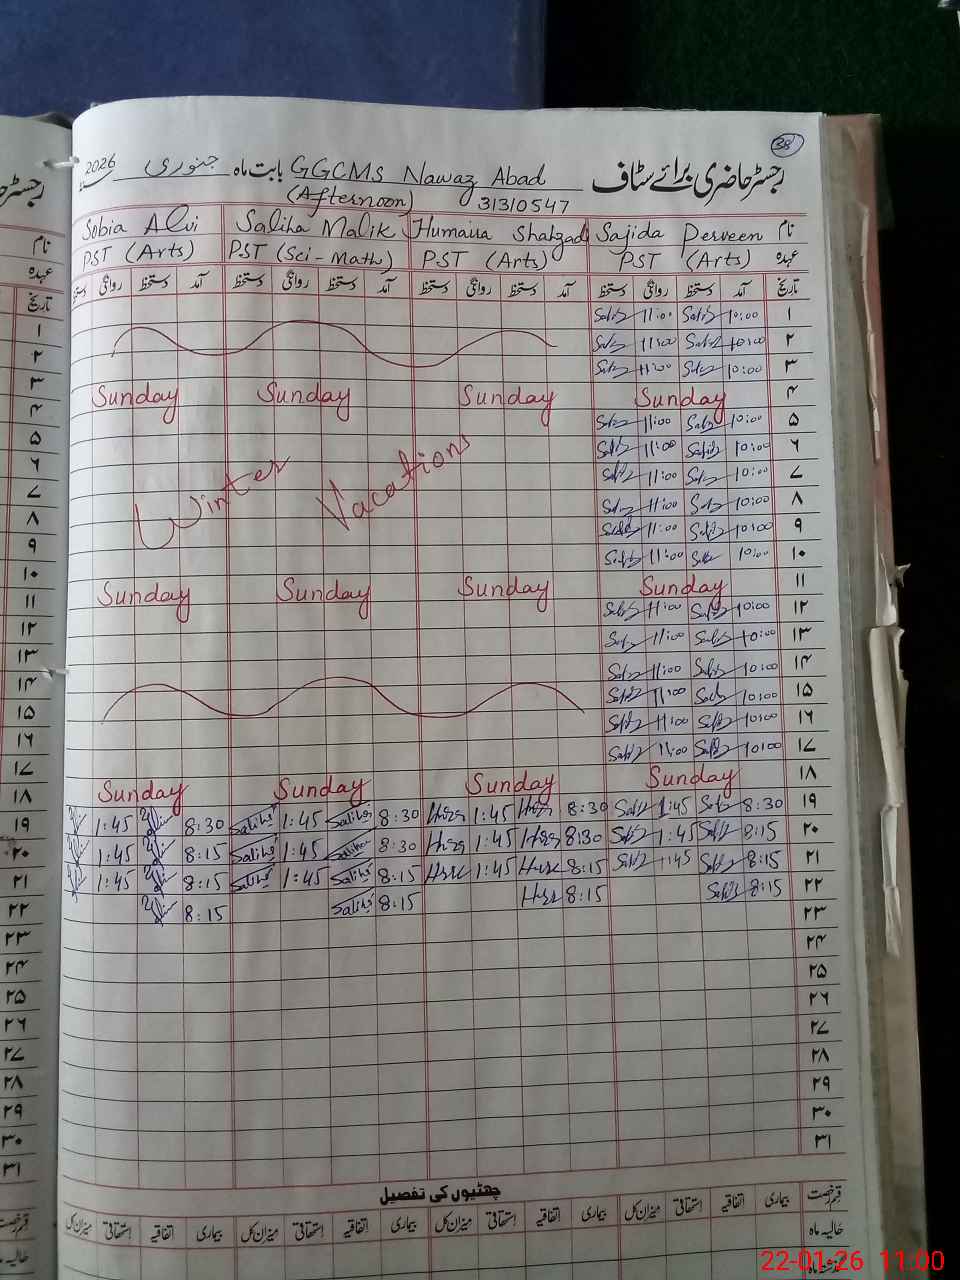 38
رجسٹر حاضری برائے سٹاف GGCMS Nawaz Abad بابت ماہ جنوری 2026
(Afternoon) 31310547
نام Sajida Perveen Humaira Shahzadi Saliha Malik Sobia Alvi
عہدہ PST (Arts) PST (Arts) PST (Sci-Math) PST (Arts)
تاریخ آمد دستخط روانگی دستخط آمد دستخط روانگی دستخط آمد دستخط روانگی دستخط آمد دستخط روانگی دستخط
۱ 10:00 11:00
۲ 10:00 11:00
۳ 10:00 11:00
۴ Sunday Sunday Sunday Sunday
۵ 10:00 11:00
۶ 10:00 11:00
۷ 10:00 11:00
Winter Vacations
۸ 10:00 11:00
۹ 10:00 11:00
۱۰ 10:00 11:00
۱۱ Sunday Sunday Sunday Sunday
۱۲ 10:00 11:00
۱۳ 10:00 11:00
۱۴ 10:00 11:00
۱۵ 10:00 11:00
۱۶ 10:00 11:00
۱۷ 10:00 11:00
۱۸ Sunday Sunday Sunday Sunday
۱۹ 8:30 1:45 8:30 1:45 8:30 Saliha 1:45 Saliha 8:30 1:45
۲۰ 8:15 1:45 8:30 1:45 8:30 Saliha 1:45 Saliha 8:15 1:45
۲۱ 8:15 1:45 8:15 1:45 8:15 Saliha 1:45 Saliha 8:15 1:45
۲۲ 8:15 8:15 8:15 Saliha 8:15
۲۳
۲۴
۲۵
۲۶
۲۷
۲۸
۲۹
۳۰
۳۱
چھٹیوں کی تفصیل
قسم رخصت بیماری اتفاقیہ استحقاقی میزان کل بیماری اتفاقیہ استحقاقی میزان کل بیماری اتفاقیہ استحقاقی میزان کل بیماری اتفاقیہ استحقاقی میزان کل
حالیہ ماہ
نام
عہدہ
تاریخ
۱
۲
۳
۴
۵
۶
۷
۸
۹
۱۰
۱۱
۱۲
۱۳
۱۴
۱۵
۱۶
۱۷
۱۸
۱۹
۲۰
۲۱
۲۲
۲۳
۲۴
۲۵
۲۶
۲۷
۲۸
۲۹
۳۰
۳۱
قسم رخصت
حالیہ ماہ
22-01-26 11:00